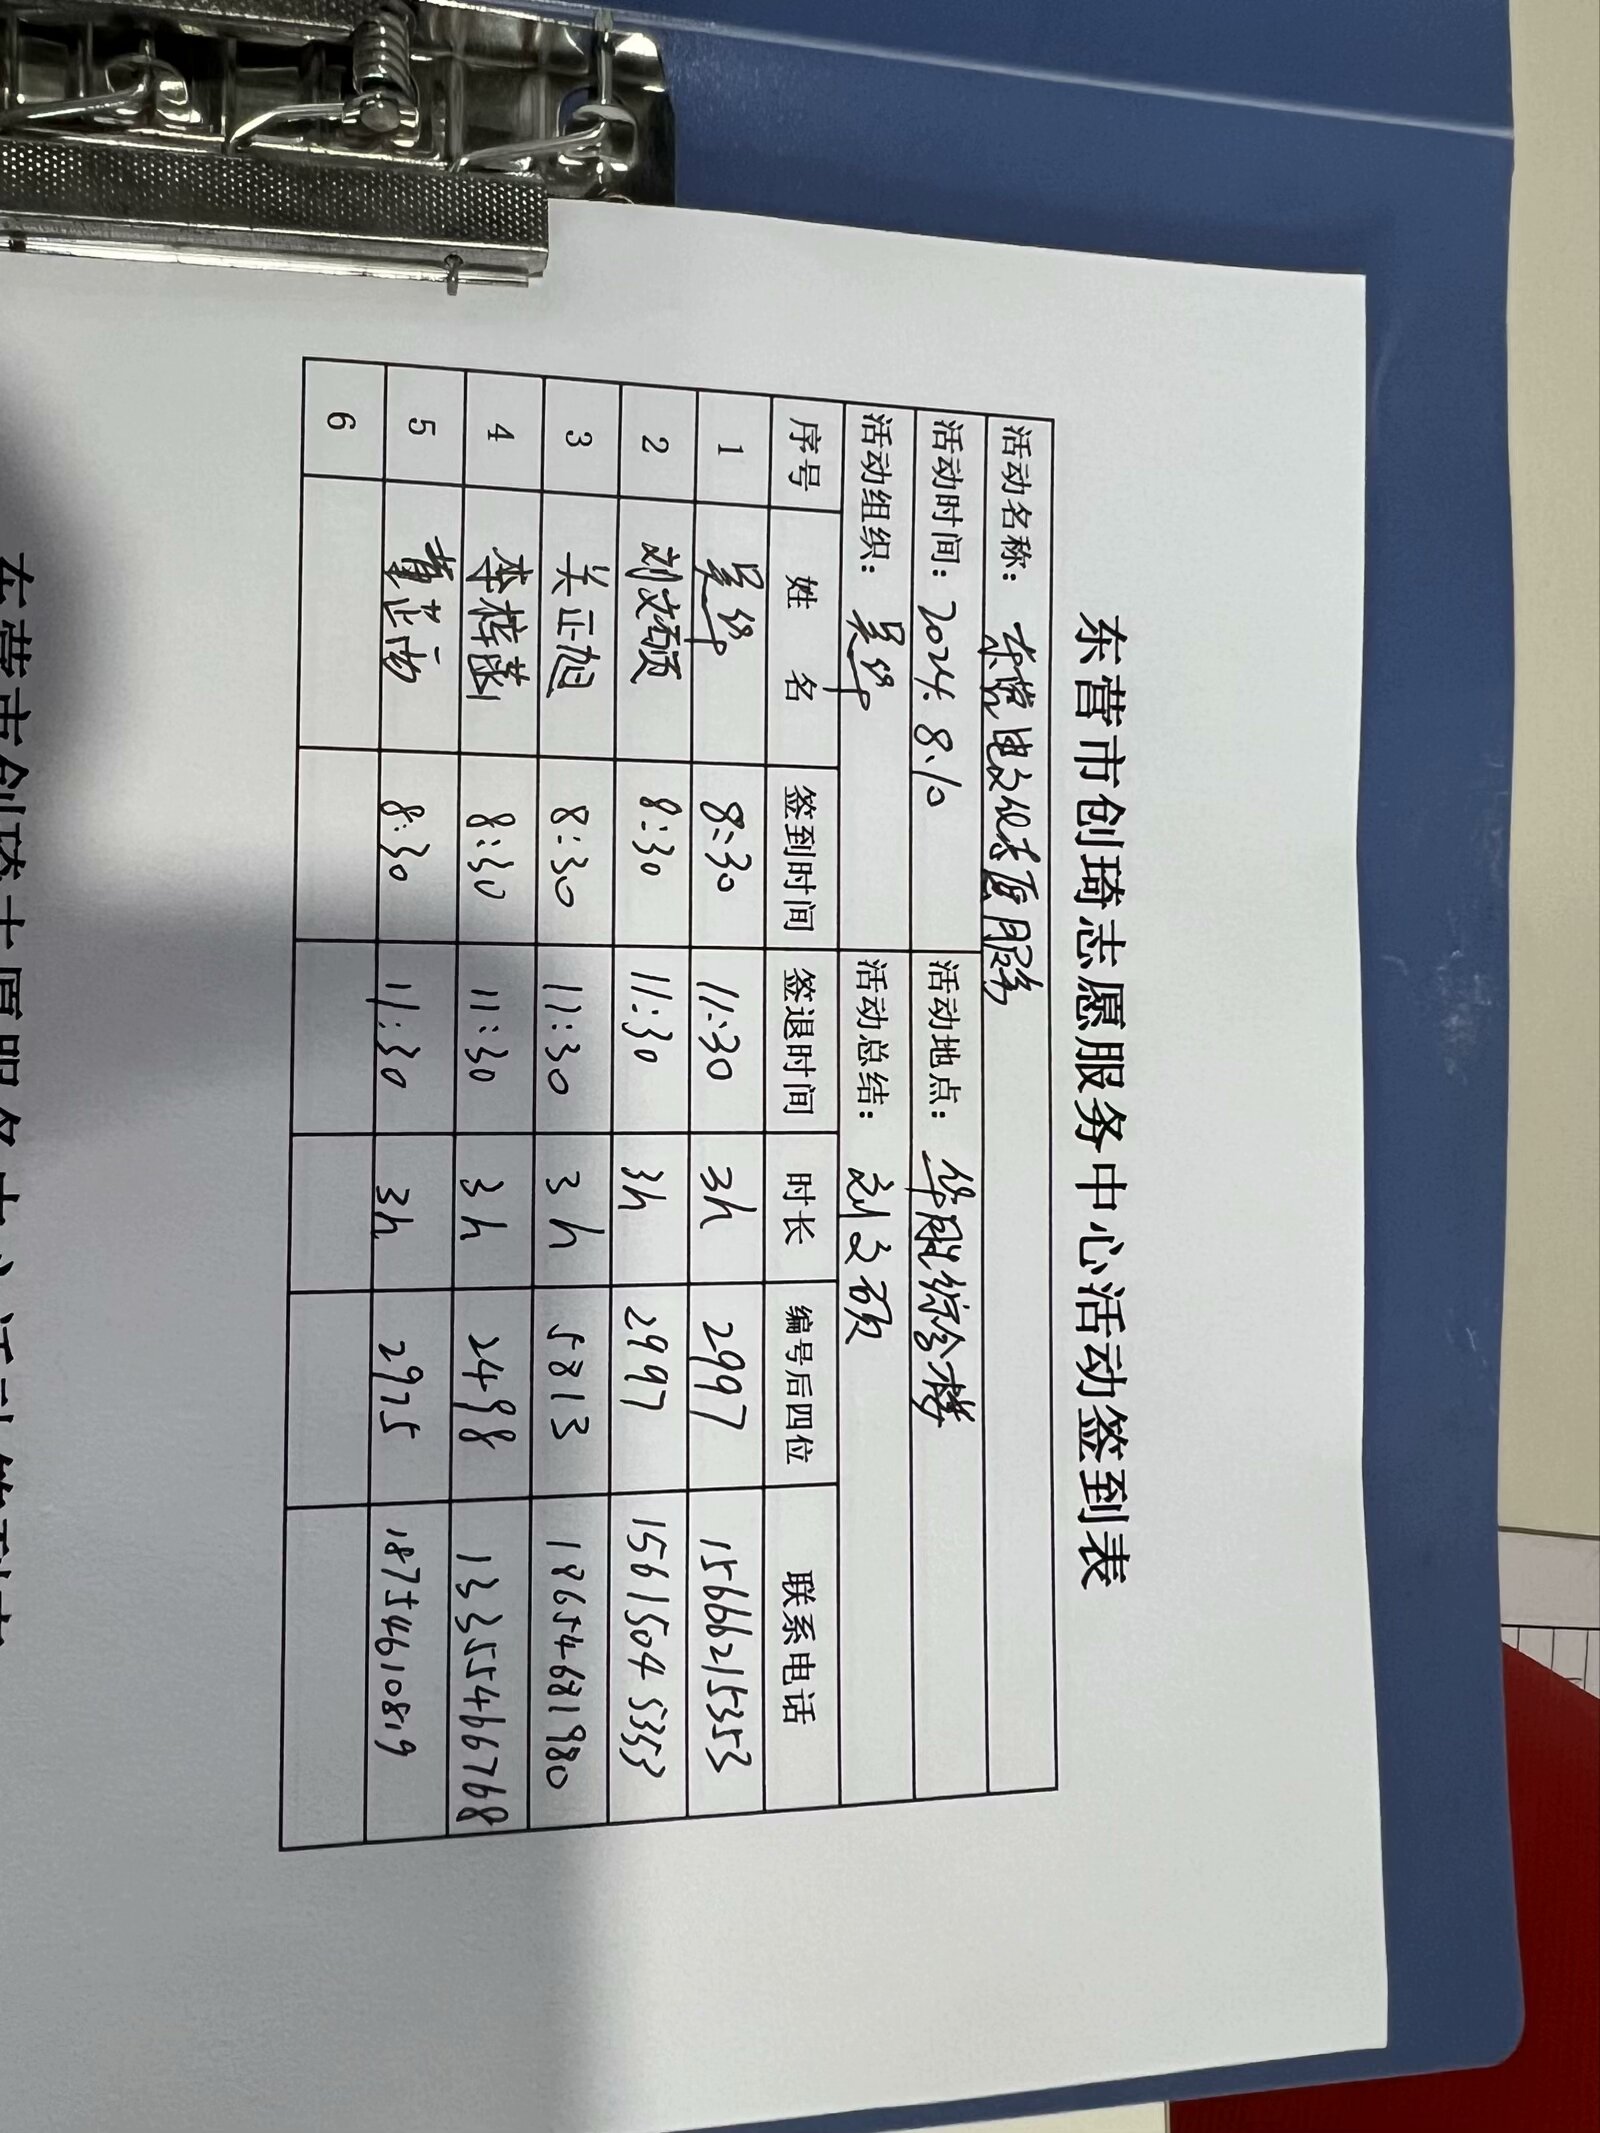 东营市创琦志愿服务中心活动签到表
活动名称： 志愿服务
活动时间：2024.8.10 活动地点：华胜综合楼
活动组织：吴华 活动总结：刘文硕
序号 姓 名 签到时间 签退时间 时长 编号后四位 联系电话
1 吴华 8:30 11:30 3h 2997 15666215353
2 刘文硕 8:30 11:30 3h 2997 15615045353
3 关正旭 8:30 11:30 3h 5813 18654681980
4 李梓菡 8:30 11:30 3h 2498 13355466768
5 董芷汤 8:30 11:30 3h 2975 18754610819
6
东营市创琦志愿服务中心活动签到表